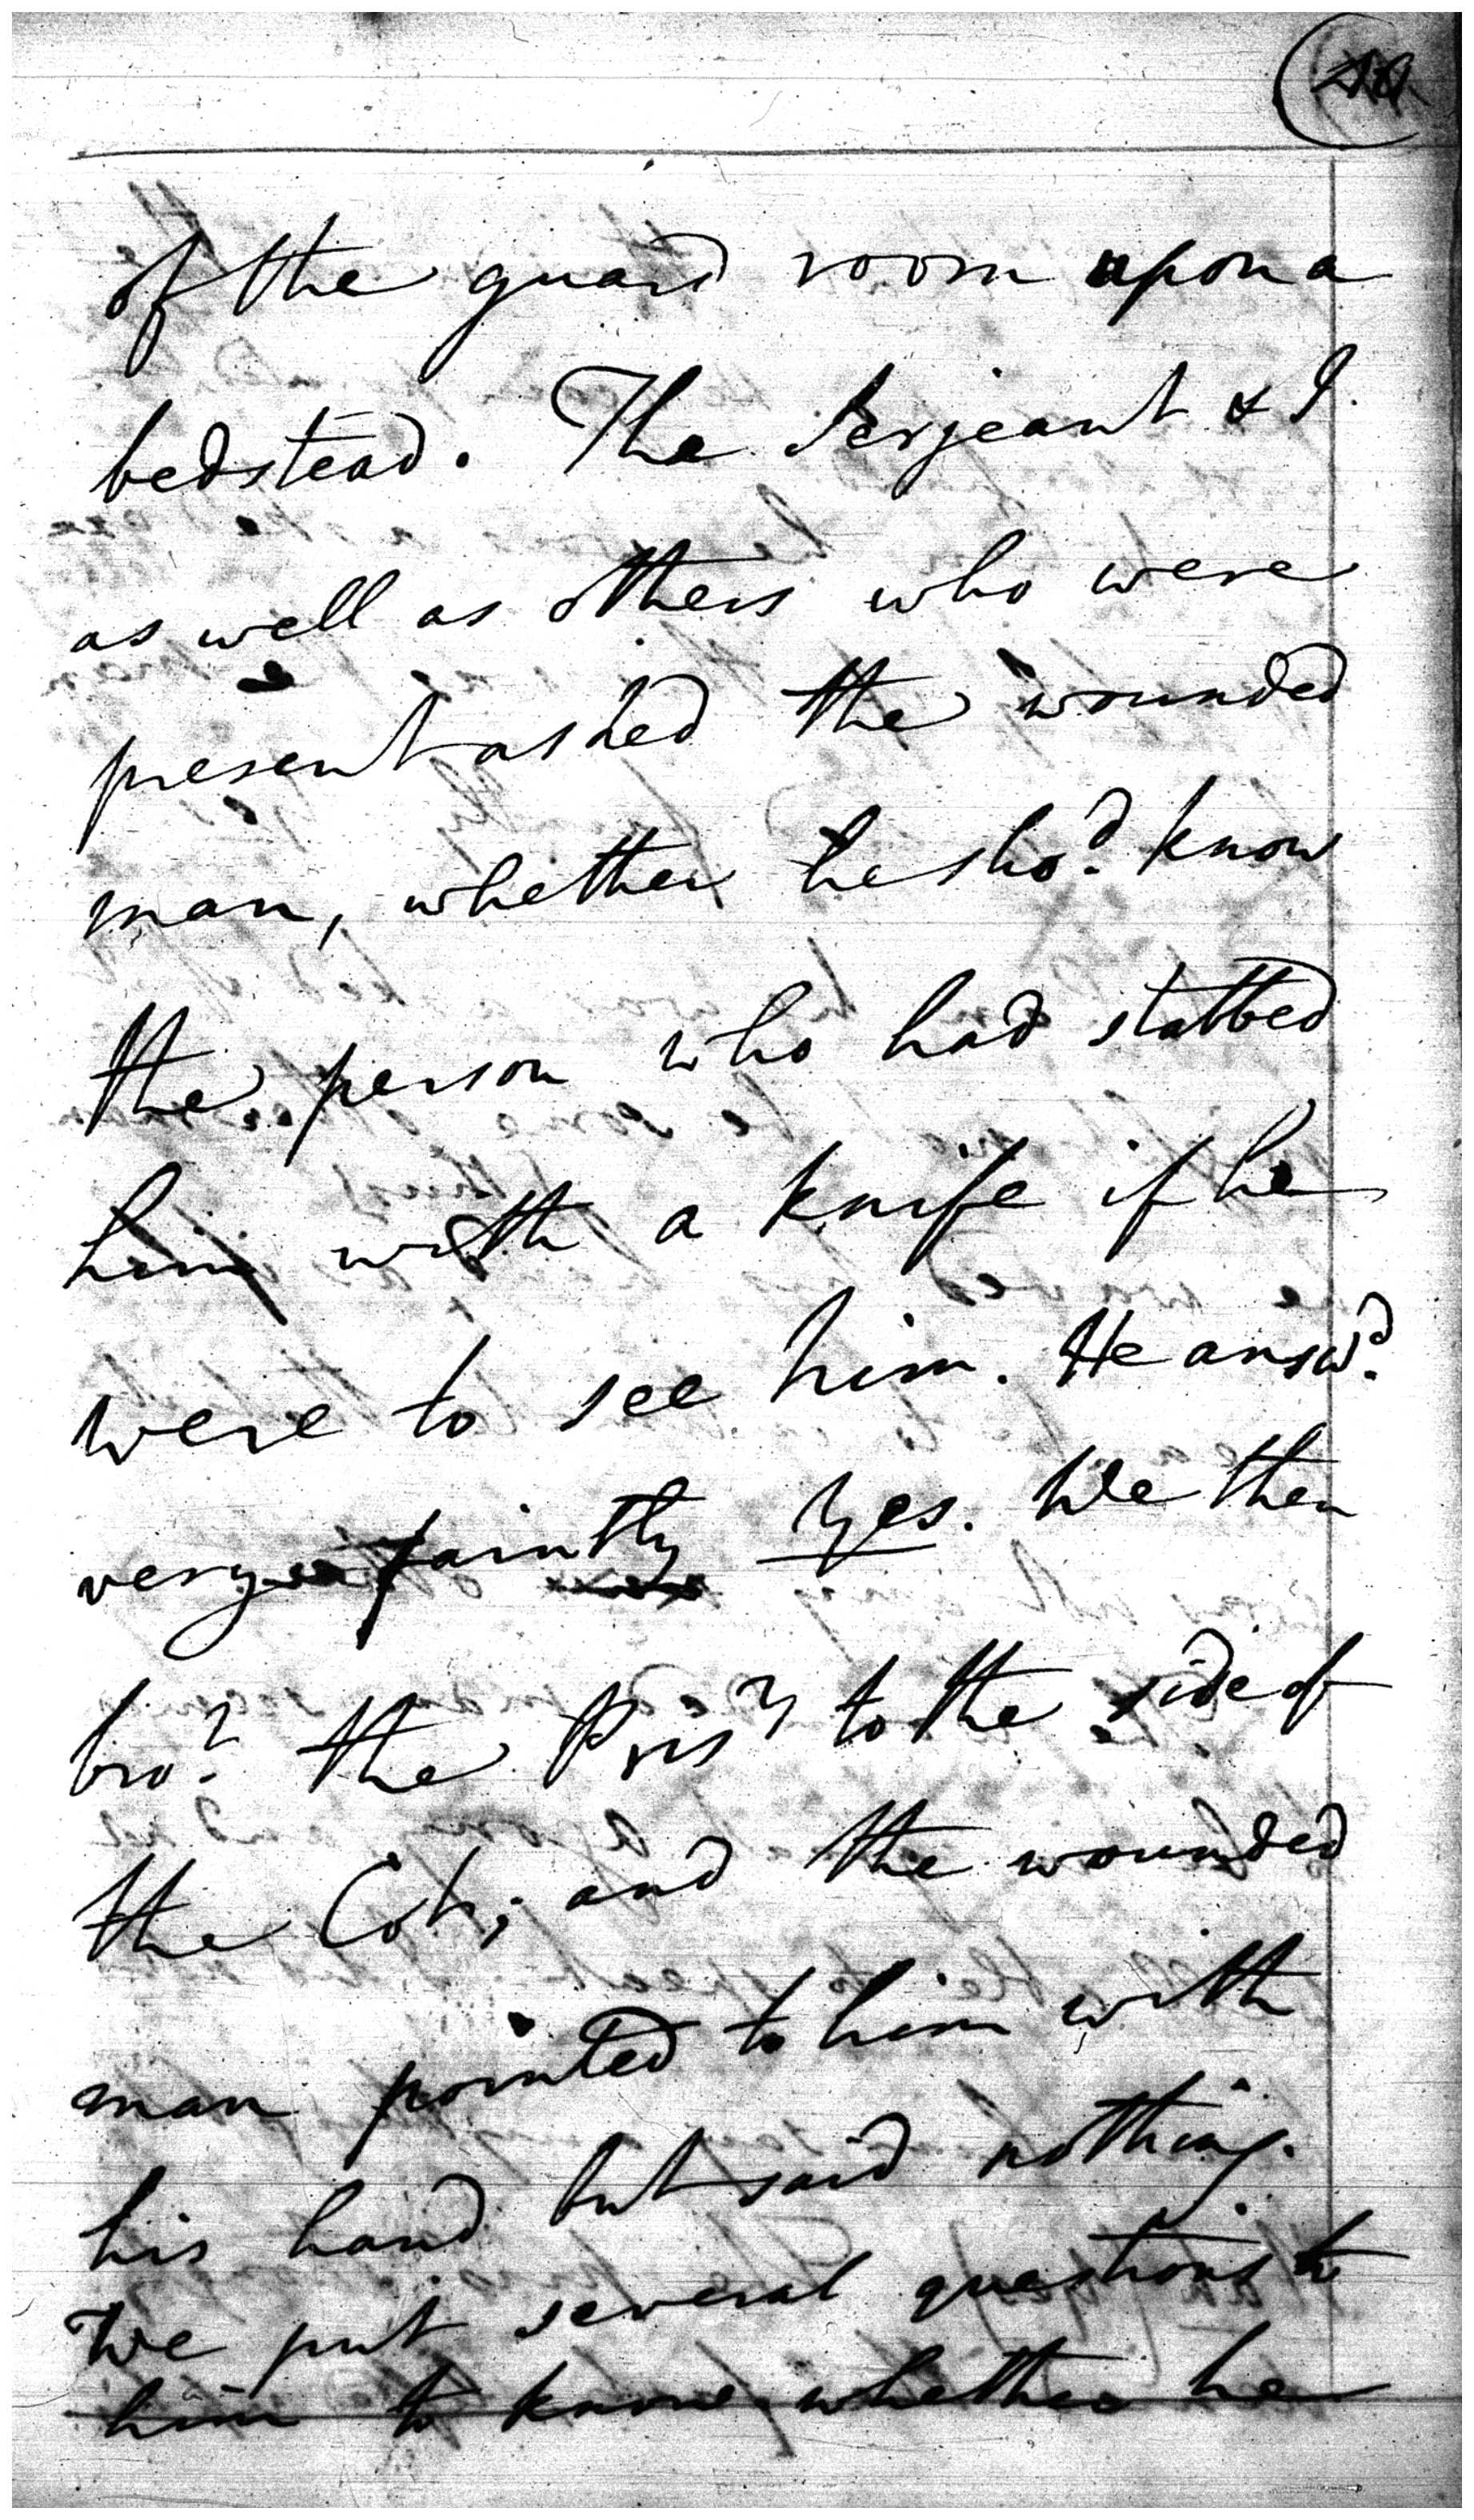 of the guard room upon a
bedstead. The Serjeant & I
as well as others who were
present asked the wounded
man, whether he shod. know
the person who had stabbed
him with a knife if he
were to see him. He answd.
very faintly Yes. We then
brot. the Prisr to the side of
the Cot; and the wounded
man pointed to him with
his hand but said nothing.
We put several questions to
him to know whether he